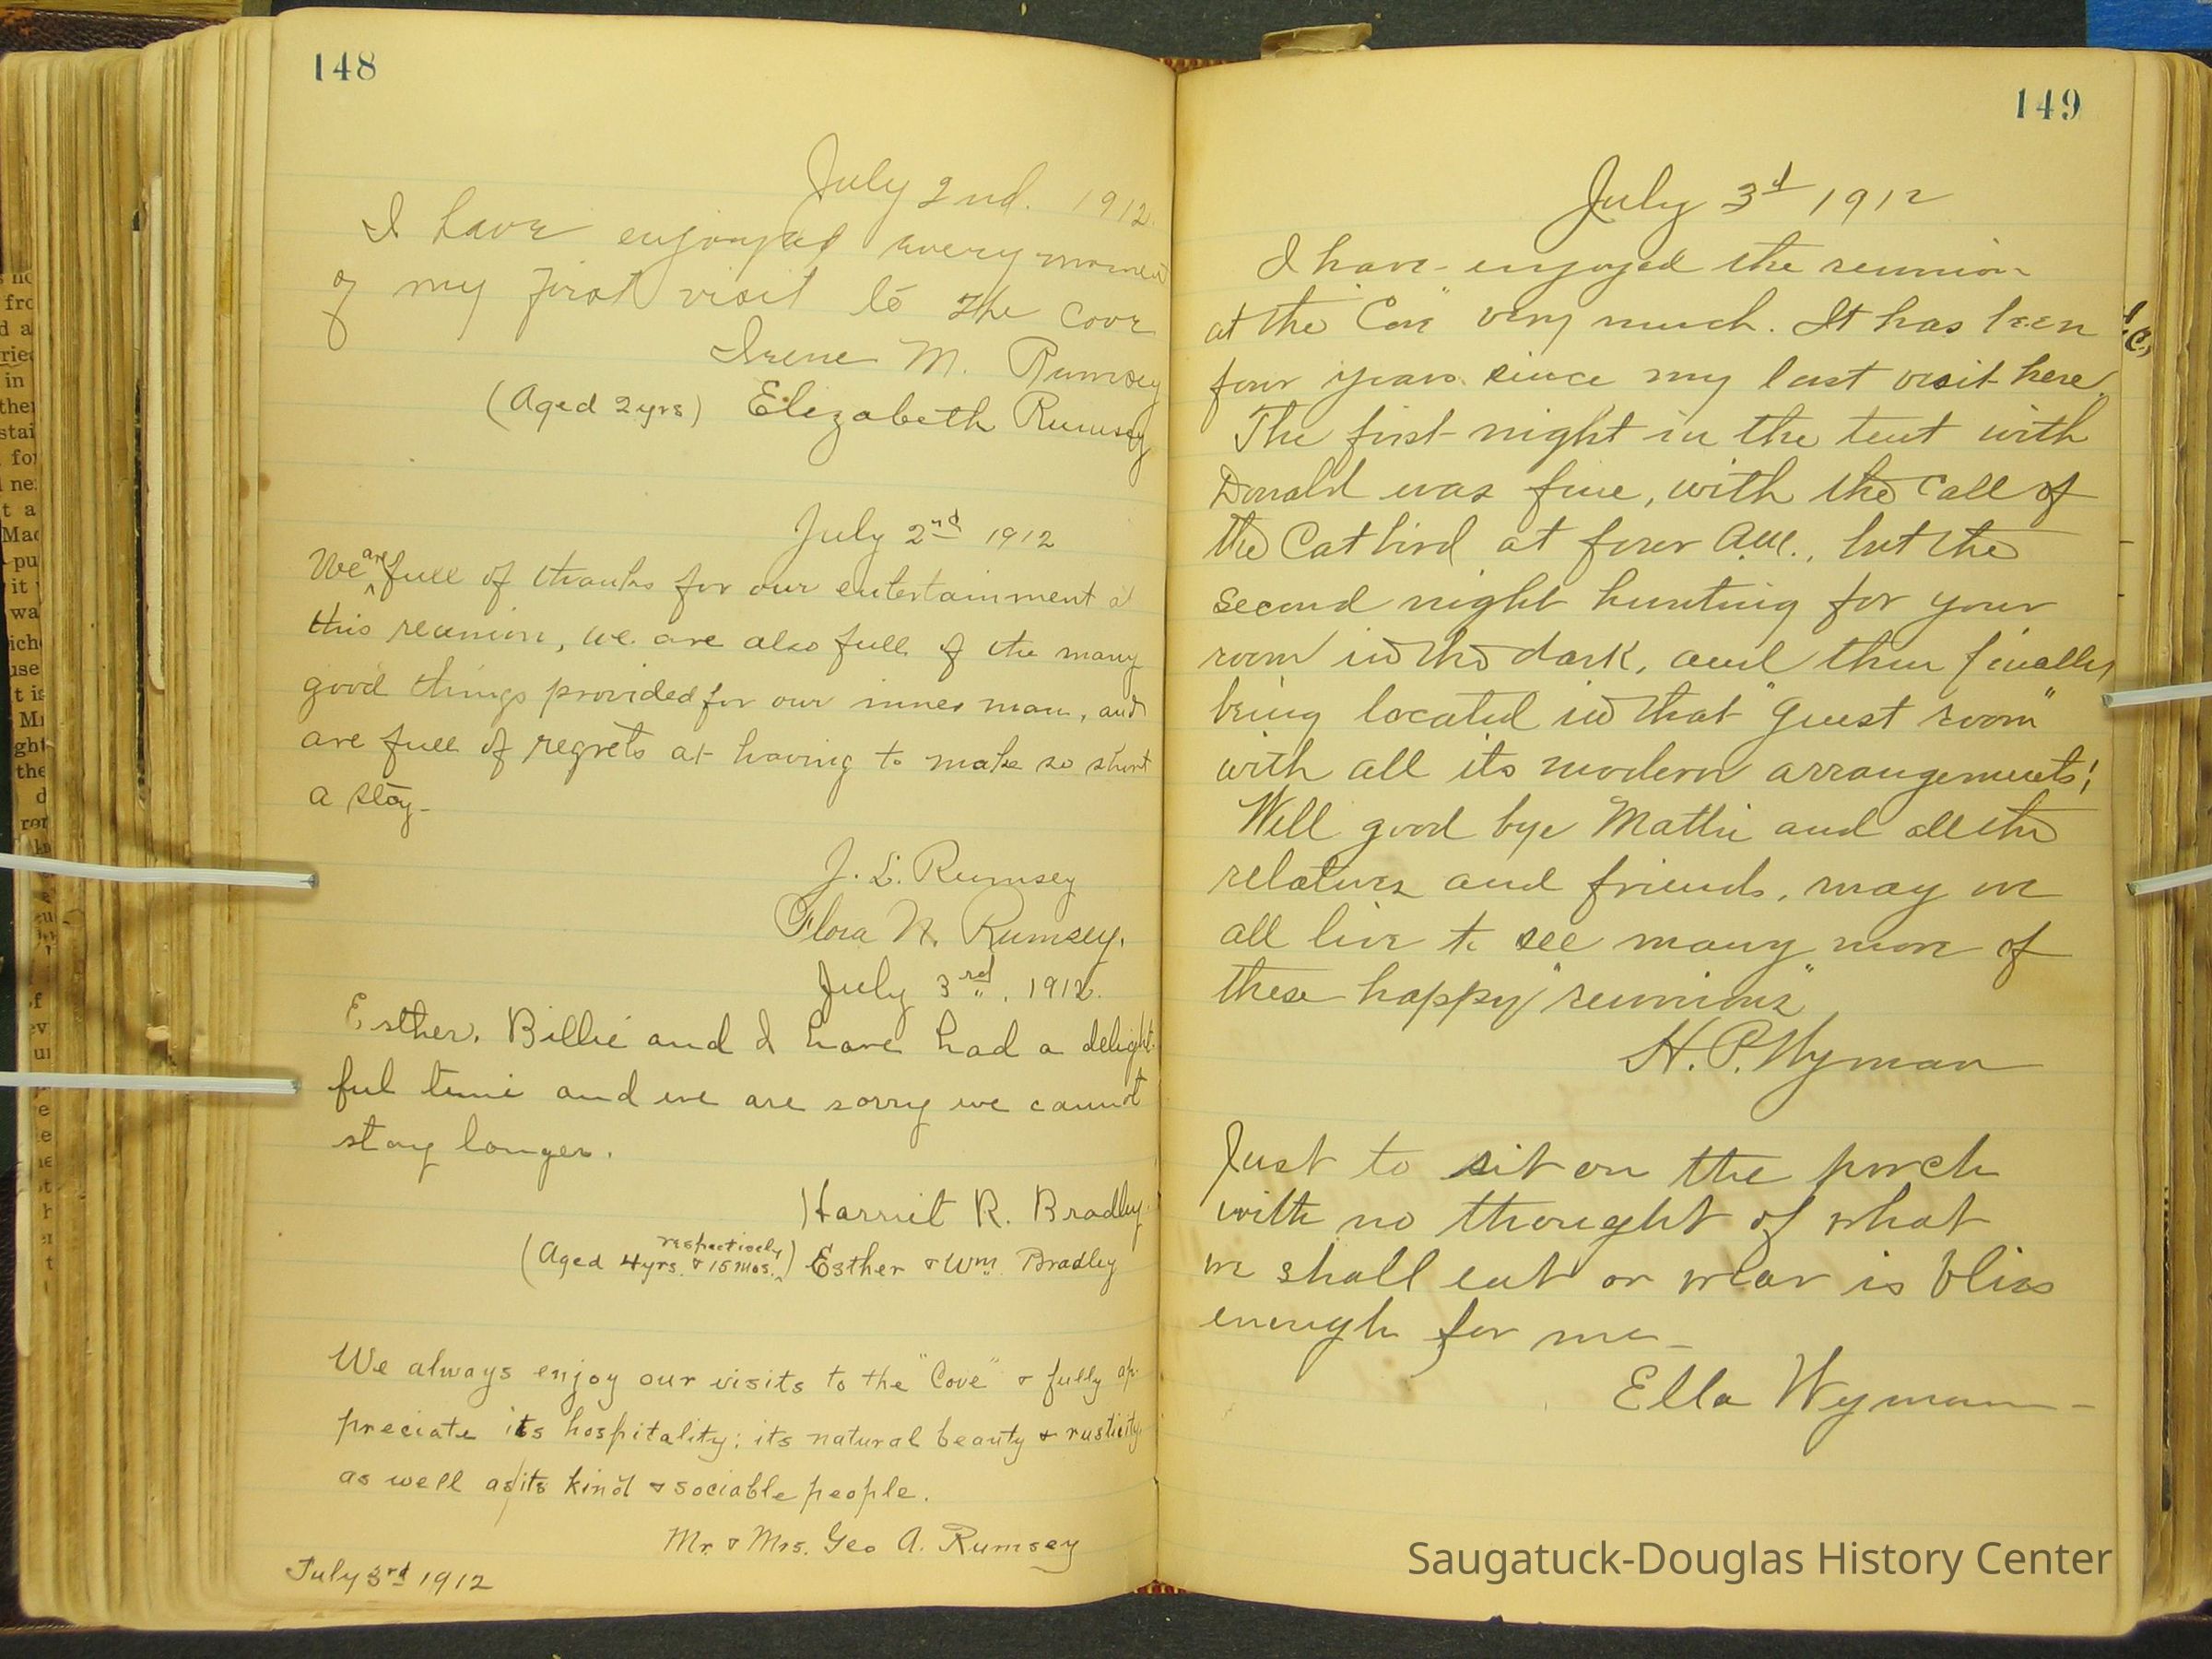 148
July 2nd. 1912.
I have enjoyed every moment
of my first visit to the Cove
Irene M. Rumsey
(Aged 2yrs) Elizabeth Rumsey
July 2nd 1912
We are full of thanks for our entertainment at
this reunion, we are also full of the many
good things provided for our inner man, and
are full of regrets at having to make so short
a stay-
J. L. Rumsey
Flora N. Rumsey.
July 3rd, 1912.
Esther, Billie and I have had a delight-
ful time and we are sorry we cannot
stay longer.
Harriet R. Bradley.
(Aged 4yrs. & 15 mos. respectively) Esther & Wm. Bradley
We always enjoy our visits to the "Cove" & fully ap-
preciate its hospitality; its natural beauty & rusticity
as well as its kind & sociable people.
Mr. & Mrs. Geo A. Rumsey
July 3rd 1912
149
July 3d 1912
I have enjoyed the reunion
at the "Cove" very much. It has been
four years since my last visit here.
The first night in the tent with
Donald was fine, with the call of
the Cat bird at four A.M., but the
second night hunting for your
room in the dark, and then finally
being located in that "guest room"
with all its modern arrangements!
Well good bye Mattie and all the
relatives and friends, may we
all live to see many more of
these happy "reunions"
H. P. Wyman
Just to sit on the porch
with no thought of what
we shall eat or wear is bliss
enough for me-
Ella Wyman-
Saugatuck-Douglas History Center